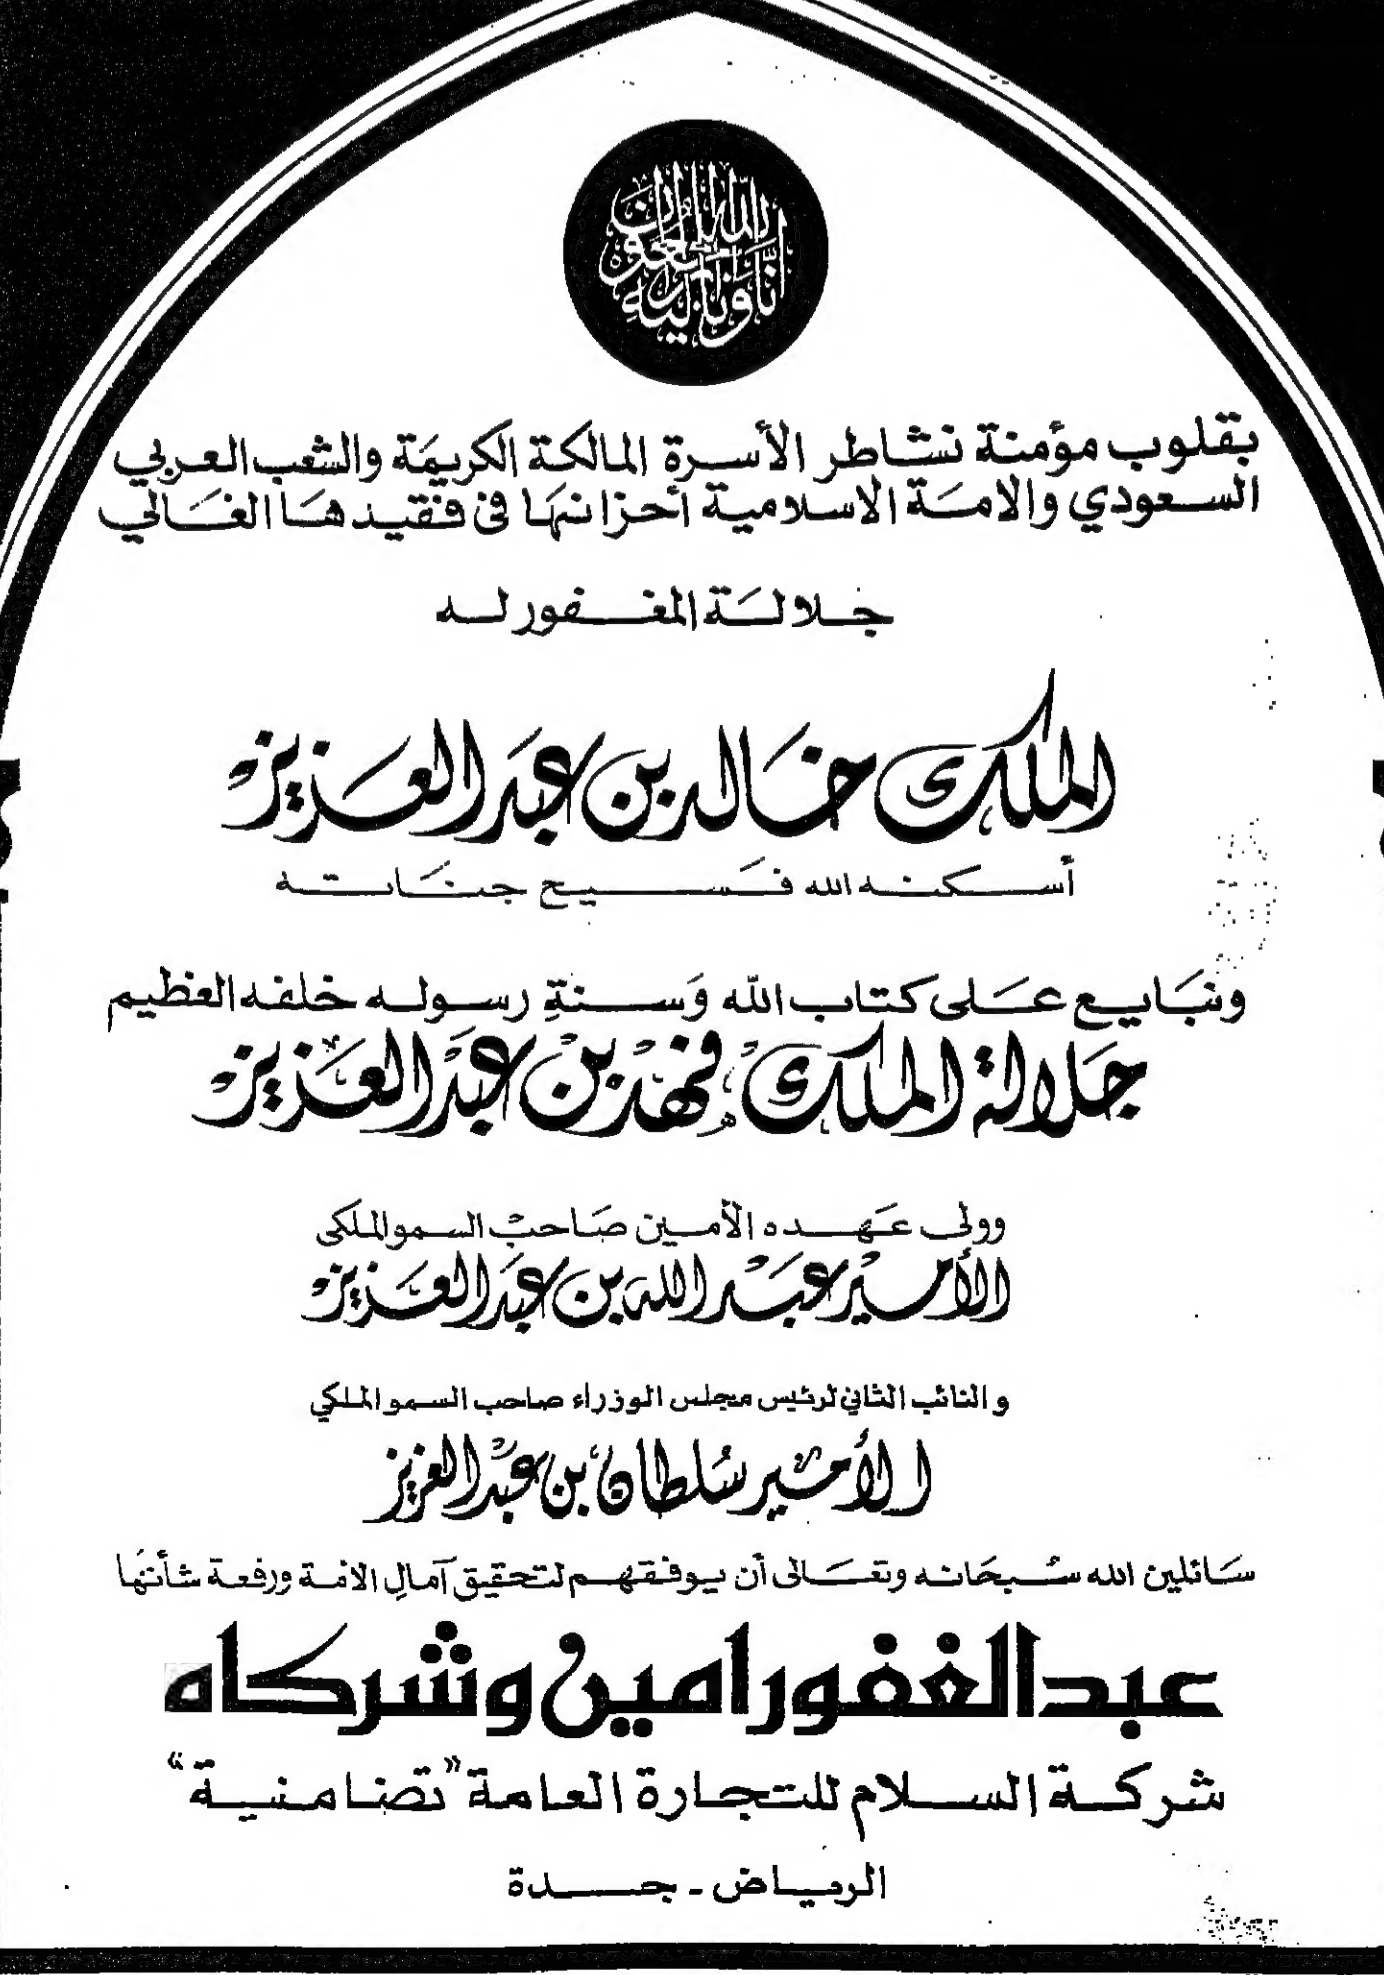 إنا لله وإنا إليه راجعون
بقلوب مؤمنة نشاطر الأسرة المالكة الكريمة والشعب العربي
السعودي والامة الاسلامية أحزانها في فقيدها الغالي
جلالة المغفور له
الملك خالد بن عبد العزيز
أسكنه الله فسيح جناته
ونبايع على كتاب الله وسنة رسوله خلفه العظيم
جلالة الملك فهد بن عبد العزيز
وولى عهده الأمين صاحب السمو الملكى
الأمير عبد الله بن عبد العزيز
والنائب الثاني لرئيس مجلس الوزراء صاحب السمو الملكي
الأمير سلطان بن عبد العزيز
سائلين الله سبحانه وتعالى أن يوفقهم لتحقيق آمال الامة ورفعة شأنها
عبد الغفور امين وشركاه
شركة السلام للتجارة العامة "تضامنية"
الرياض - جدة